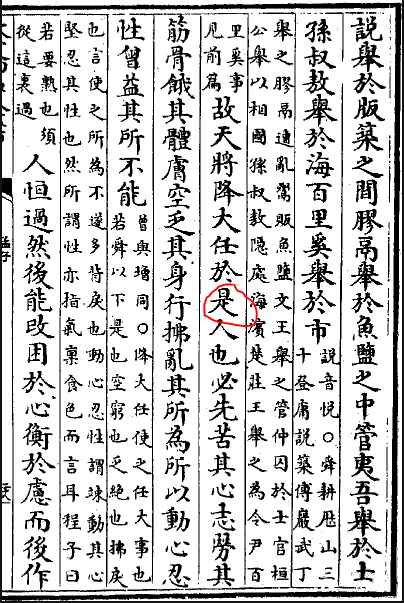 說舉於版築之間膠鬲舉於魚鹽之中管夷吾舉於士
孫叔敖舉於海百里奚舉於市
說音悅○舜耕歷山三
十登庸說築傅巖武丁
舉之膠鬲遭亂鬻販魚鹽文王舉之管仲囚於士官桓
公舉以相國孫叔敖隱處海濱楚莊王舉之為令尹百
里奚事
見前篇
故天將降大任於是人也必先苦其心志勞其
筋骨餓其體膚空乏其身行拂亂其所為所以動心忍
性曾益其所不能
曾與增同○降大任使之任大事也
若舜以下是也空窮也乏絕也拂戾
也言使之所為不遂多背戾也動心忍性謂竦動其心
堅忍其性也然所謂性亦指氣稟食色而言耳程子曰
若要熟也須
從這裏過
人恒過然後能改困於心衡於慮而後作